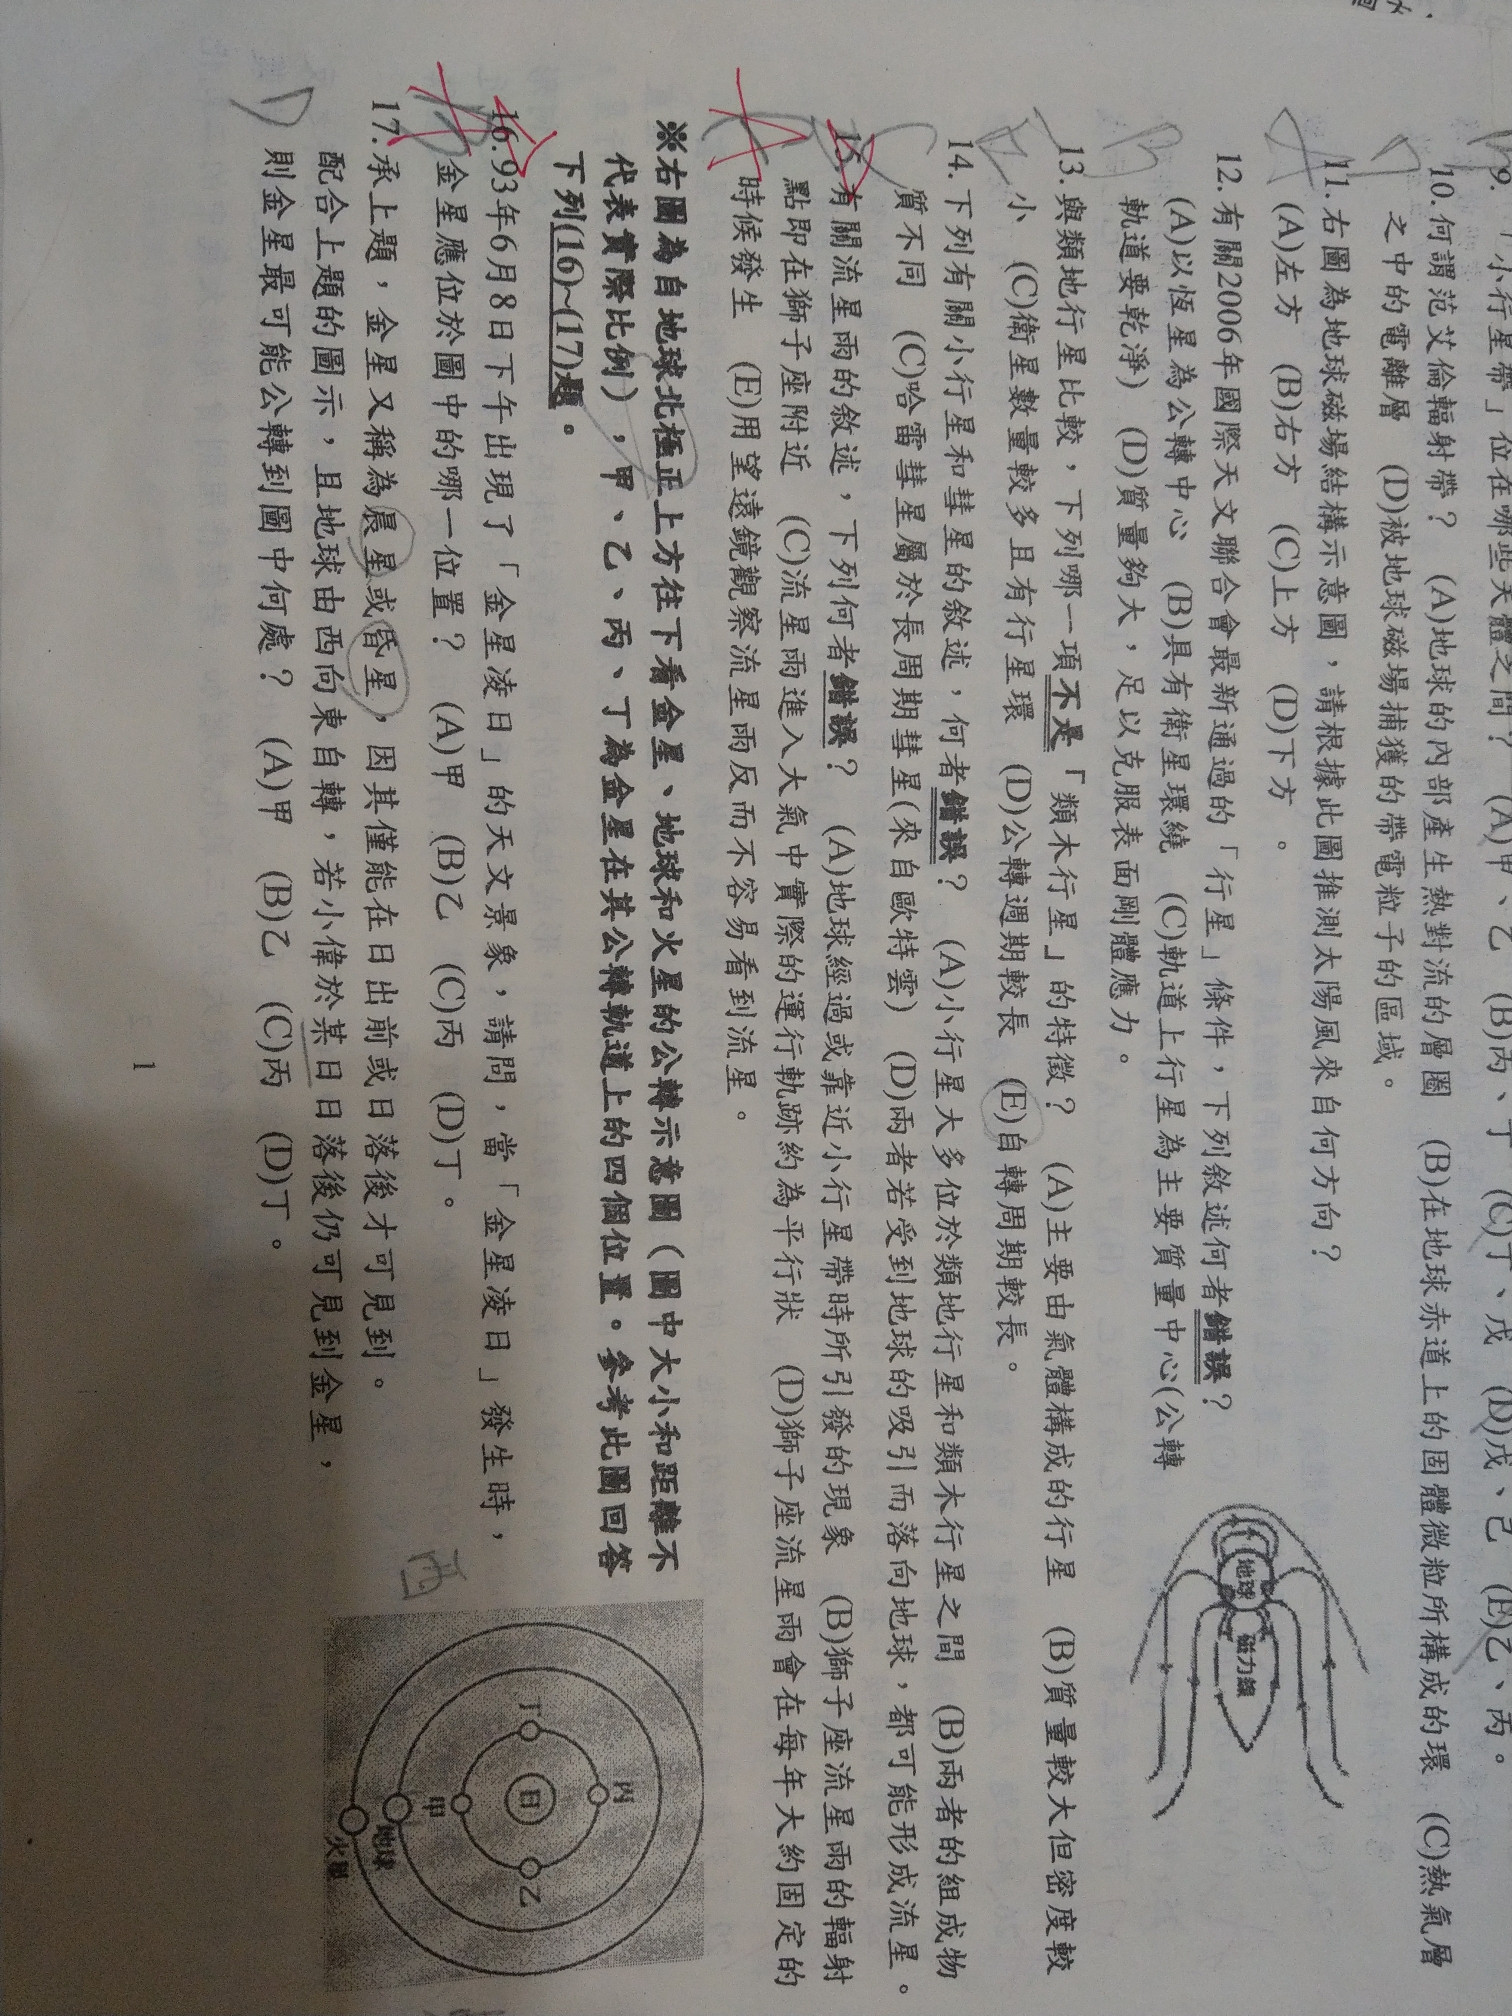 9.「小行星帶」位在哪些天體之間？ (A)甲、乙 (B)丙、丁 (C)丁、戊 (D)戊、己 (E)乙、丙。
10.何謂范艾倫輻射帶？ (A)地球的內部產生熱對流的層圈 (B)在地球赤道上的固體微粒所構成的環 (C)熱氣層
之中的電離層 (D)被地球磁場捕獲的帶電粒子的區域。
11.右圖為地球磁場結構示意圖，請根據此圖推測太陽風來自何方向？
(A)左方 (B)右方 (C)上方 (D)下方 。
12.有關2006年國際天文聯合會最新通過的「行星」條件，下列敘述何者錯誤？
(A)以恆星為公轉中心 (B)具有衛星環繞 (C)軌道上行星為主要質量中心(公轉
軌道要乾淨) (D)質量夠大，足以克服表面剛體應力。
地球
磁力線
13.與類地行星比較，下列哪一項不是「類木行星」的特徵？ (A)主要由氣體構成的行星 (B)質量較大但密度較
小 (C)衛星數量較多且有行星環 (D)公轉週期較長 (E)自轉周期較長。
14.下列有關小行星和彗星的敘述，何者錯誤？ (A)小行星大多位於類地行星和類木行星之間 (B)兩者的組成物
質不同 (C)哈雷彗星屬於長周期彗星(來自歐特雲) (D)兩者若受到地球的吸引而落向地球，都可能形成流星。
15.有關流星雨的敘述，下列何者錯誤？ (A)地球經過或靠近小行星帶時所引發的現象 (B)獅子座流星雨的輻射
點即在獅子座附近 (C)流星雨進入大氣中實際的運行軌跡約為平行狀 (D)獅子座流星雨會在每年大約固定的
時候發生 (E)用望遠鏡觀察流星雨反而不容易看到流星。
A
※右圖為自地球北極正上方往下看金星、地球和火星的公轉示意圖（圖中大小和距離不
代表實際比例），甲、乙、丙、丁為金星在其公轉軌道上的四個位置。參考此圖回答
下列(16)~(17)題。
16.93年6月8日下午出現了「金星凌日」的天文景象，請問，當「金星凌日」發生時，
金星應位於圖中的哪一位置？ (A)甲 (B)乙 (C)丙 (D)丁。
A
17.承上題，金星又稱為晨星或昏星，因其僅能在日出前或日落後才可見到。
配合上題的圖示，且地球由西向東自轉，若小偉於某日日落後仍可見到金星，
則金星最可能公轉到圖中何處？ (A)甲 (B)乙 (C)丙 (D)丁。
D
西
丙
丁
日
乙
甲
地球
火星
1